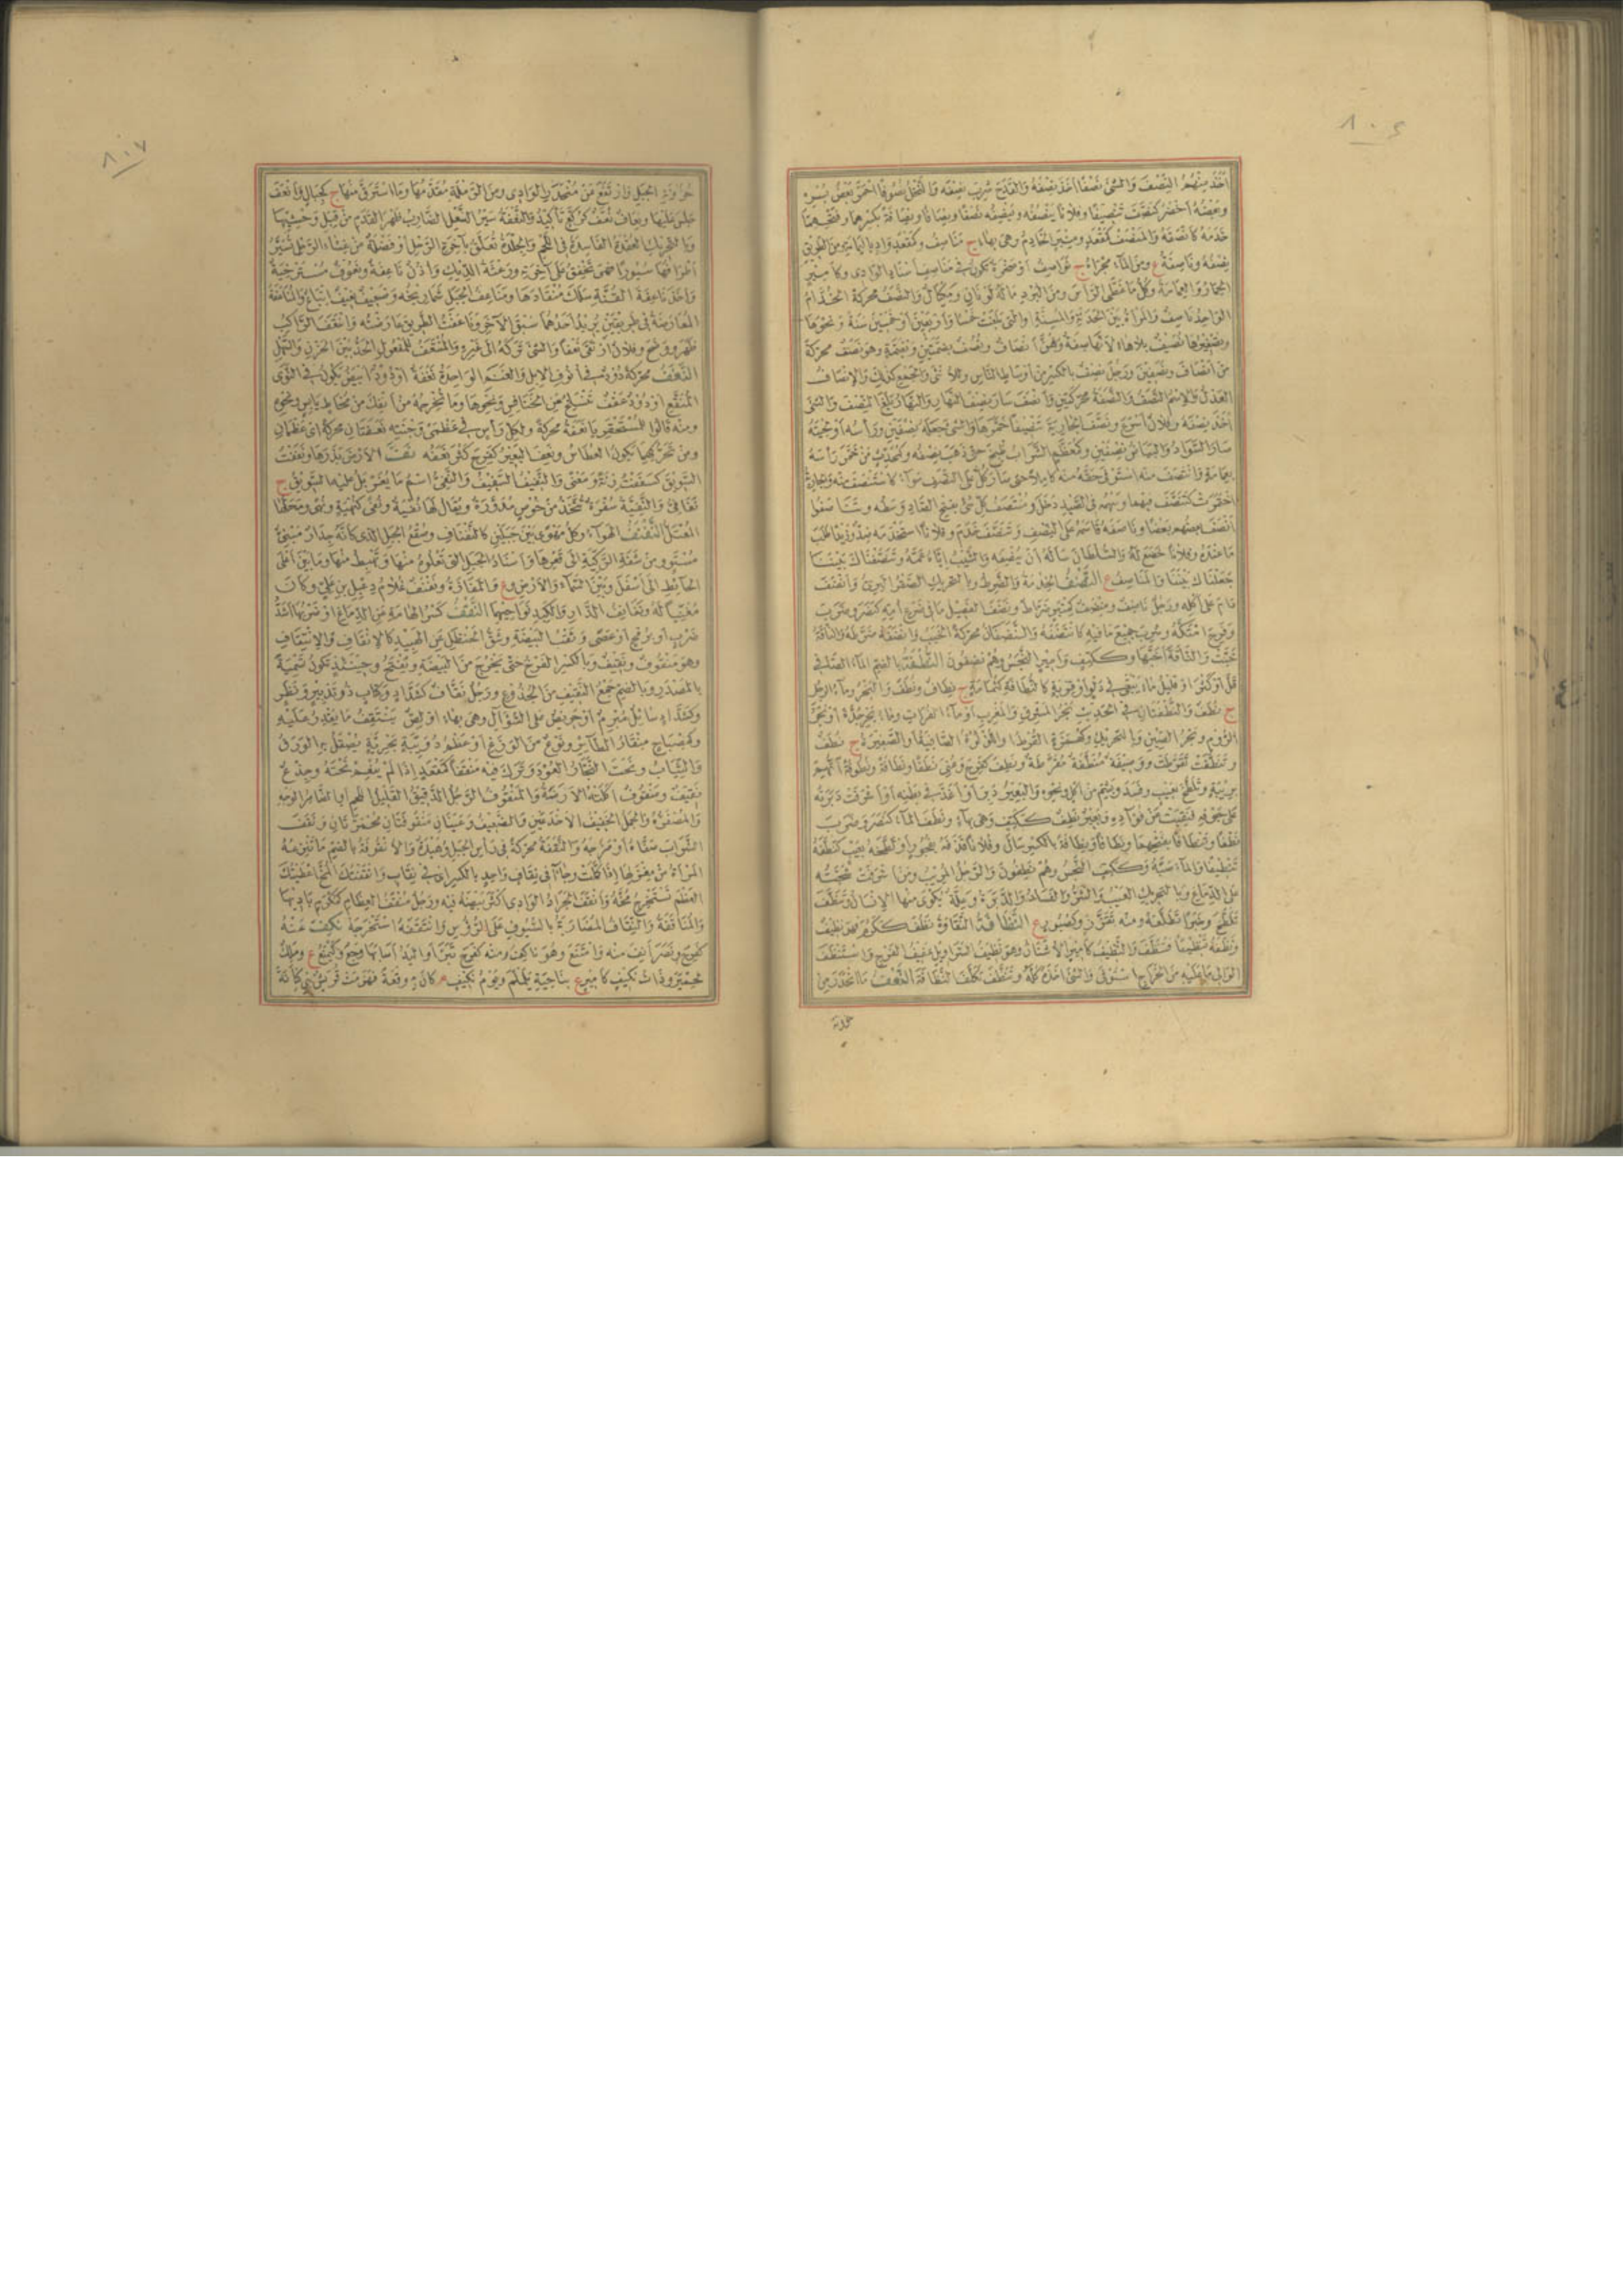 ٨٠٤
أخذ منهم النصف والشئ نصفا أخذ نصفه والقدح شرب نصفه والنخل نصوفا احمر بعض بسره
وبعضه أخضر كنصف تنصيفا وفلانا ينصفه وينصفه نصفا ونصافا ونصافة بكسرهما وفتحهما
خدمه كأنصفه والمنصف كمقعد ومنبر الخادم وهى بهاء ج مناصف وكمقعد واد باليمامة ومن الطريق
نصفه وناصفة ع ومن الماء مجراه ج نواصف أو صخرة تكون فى مناصف أسناد الوادى وكأمير
الخمار والعمامة وكل ما غطى الرأس ومن البرد ماله لونان ومكيال والنصف محركة الخدام
الواحد ناصف والمرأة بين الحدثة والمسنة أو التى بلغت خمسا وأربعين أو خمسين سنة ونحوها
وتصغيرها نصيف بلا هاء لأنها صفة وهن أنصاف ونصف بضمتين وبضمة وهو نصف محركة
من أنصاف ونصفين ورجل نصف بالكسر من أوساط الناس وللأنثى والجمع كذلك والإنصاف
العدل والإسم النصف والنصفة محركتين وأنصف سار نصف النهار والنهار بلغ النصف والشئ
أخذ نصفه وفلان أسرع ونصف الجارية تنصيفا خمرها والشئ جعله نصفين ورأسه أو لحيته
صار السواد والبياض نصفين وكمعظم الشراب طبخ حتى ذهب نصفه وكمحدث من خمر رأسه
بعمامة وانتصف منه استوفى حقه منه كاملا حتى صار كل على النصف سواء كاستنصف منه والجارية
اختمرت كتنصفت فيهما وسهمه فى الصيد دخل ومنتصف كل شئ بفتح الصاد وسطه وتناصفوا
أنصف بعضهم بعضا وناصفه قاسمه على النصف وتنصف خدم وفلانا استخدمه ضد وزيدا طلب
ما عنده وفلانا خضع له والسلطان سأله أن ينصفه والشيب إياه عمه وتنصفناك بيننا
جعلناك بيننا والمناصف ع النضف الخدمة والضرط وبالتحريك الصعتر البرى وأنضف
دام على أكله ورجل ناضف ومنضف كمنبر ضراط ونضف الفصيل ما فى ضرع أمه كنصر وضرب
وفرح امتكه وشرب جميع ما فيه كانتضفه والنضفان محركة الخبب وأنضفه ضرطه والناقة
خبت والناقة أخبها وككتف وأمير النجس وهم نضفون النطفة بالضم الماء الصافى
قل أو كثر أو قليل ماء يبقى فى دلو أو قربة كالنطافة كثمامة ج نطاف ونطف والبحر وماء الرجل
ج نطف والنطفتان فى الحديث بحر المشرق والمغرب أو ماء الفرات وماء بحر جدة أو بحر
الروم وبحر الصين وبالتحريك وكهمزة القرط أو اللؤلؤة الصافية أو الصغيرة ج نطف
وتنطفت تقرطت ووصيفة منطفة مقرطة ونطف كفرح وعنى نطفا ونطافة ونطوفة اتهم
بريبة وتلطخ بعيب وفسد وبشم من أكل ونحوه والبعير دبر أو أغد فى بطنه أو أشرفت دبرته
على جوفه فنقبت عن فؤاده وبعير نطف ككتف وهى بهاء ونطف الماء كنصر وضرب
نطفا وتنطافا بفتحهما ونطافا ونطافة بالكسر سال وفلانا قذفه بفجور أو لطخه بعيب كنطفه
تنطيفا والماء صبه وككتف النجس وهم نطفون والرجل المريب ومن أشرفت شجته
على الدماغ وبالتحريك العيب والشر والفساد والدبرة وعلة يكوى منها الإنسان وتنطف
تلطخ وخبرا تطلعه ومنه تقزز وكصبور ع النظافة النقاوة نظف ككرم فهو نظيف
ونظفه تنظيفا فتنظف والنظيف كأمير الأشنان وهو نظيف السراويل عفيف الفرج واستنظف
الوالى ما عليه من الخراج استوفى والشئ أخذه كله وتنظف تكلف النظافة النعف ما انحدر من
حزونة
٨٠٧
حزونة الجبل وارتفع عن منحدر الوادى ومن الرملة مقدمها وما استرق منها ج كجبال وأنعف
جلس عليها ونعاف نعف كركع تأكيد والنعفة سير النعل الضارب ظهر القدم من قبل وحشيها
وبالتحريك العقدة الفاسدة فى اللحم والجلدة تعلق بآخرة الرحل أو فضلة من غشاء الرحل تسير
أطرافها سيورا فهى تخفق على آخرته ورعثة الديك وأذن ناعفة ونعوف مسترخية
وأخذ ناعفة القنة سلك منقادها ومناعف الجبل شماريخه وضعيف نعيف إتباع والمناعفة
المعارضة فى طريقين يريد أحدهما سبق الآخر وناعفت الطريق عارضته وانتعف الراكب
ظهر ووضح وفلان ارتقى نعفا والشئ تركه الى غيره والمنتعف للمفعول الحد بين الحزن والسهل
النغف محركة دود فى أنوف الابل والغنم الواحدة نغفة أو دود أبيض يكون فى النوى
المنقع أو دود عقف تنسلخ عن الخنافس ونحوها وما تخرجه من أنفك من مخاط يابس ونحوه
ومنه قالوا للمستحقر يا نغفة محركة ولكل رأس فى عظمى وجنتيه نغفتان محركة اى عظمان
ومن تحركهما يكون العطاس ونغف البعير كفرح كثر نغفه نفت الأرض بذرها ونففت
السويق كسففت زنة ومعنى والنفيف السفيف والنفى اسم ما يغربل عليه السويق ج
نفافى والنفية سفرة تتخذ من خوص مدورة ويقال لها نفية ونفى كنهية ونهى ومحلها
المعتل النفنف الهواء وكل مهوى بين جبلين كالنفناف وصقع الجبل الذى كأنه جدار مبنى
مستو ومن شفة الركية الى قعرها وأسناد الجبل التى تعلوه منها وتهبط منها وما بين أعلى
الحائط الى أسفل وبين السماء والأرض و ع والمفازة ونفنف غلام دعبل بن على وكان
مغنيا له ونفانف الدار والكبد نواحيهما النقف كسر الهامة عن الدماغ أو ضربها أشد
ضرب أو برمح أو عصى وثقب البيضة وشق الحنظل عن الهبيد كالإنقاف والإنتقاف
وهو منقوف ونقيف وبالكسر الفرخ حتى يخرج من البيضة ويفتح وحينئذ تكون تسمية
بالمصدر وبالضم جمع النقيف من الجذوع ورجل نقاف كشداد وكتاب ذو تدبير ونظر
وكشداد سائل مبرم أو حريص على السؤال وهى بهاء أو لص ينتقف ما يقدر عليه
وكمصباح منقار الطائر ونوع من الوزغ أو عظم دويبة بحرية يصقل به الورق
والثياب ونحت النجار العود وترك فيه منقفا كمقعد إذا لم ينعم نحته وجذع
نقيف ومنقوف أكلته الأرضة والمنقوف الرجل الدقيق القليل اللحم أو الضامر الوجه
والمصفره والجمل الخفيف الأخدعين والضعيف وعينان منقوفتان محمرتان ونقف
الشراب صفاه أو مزجه والنقفة محركة فى رأس الجبل وهيدة والأنقوفة بالضم ما تنزعه
المرأة من مغزلها إذا كملت وجاآ فى نقاف واحد بالكسر اى فى نقاب وأنقفتك المخ أعطيتك
العظم تستخرج مخه وأنقف الجراد الوادى أكثر بيضه فيه ورجل منقف العظام كمكرم باديها
والمناقفة والنقاف المضاربة بالسيوف على الرؤس وانتقفه استخرجه نكف عنه
كفرح ونصر أنف منه وامتنع وهو ناكف ومنه كفرح تبرأ واليد أصابها وجع وكيمنع ع وملك
لحمير وذات نكيف كأمير ع بناحية يلملم ويوم نكيف م كان به وقعة فهزمت قريش بنى كنانة